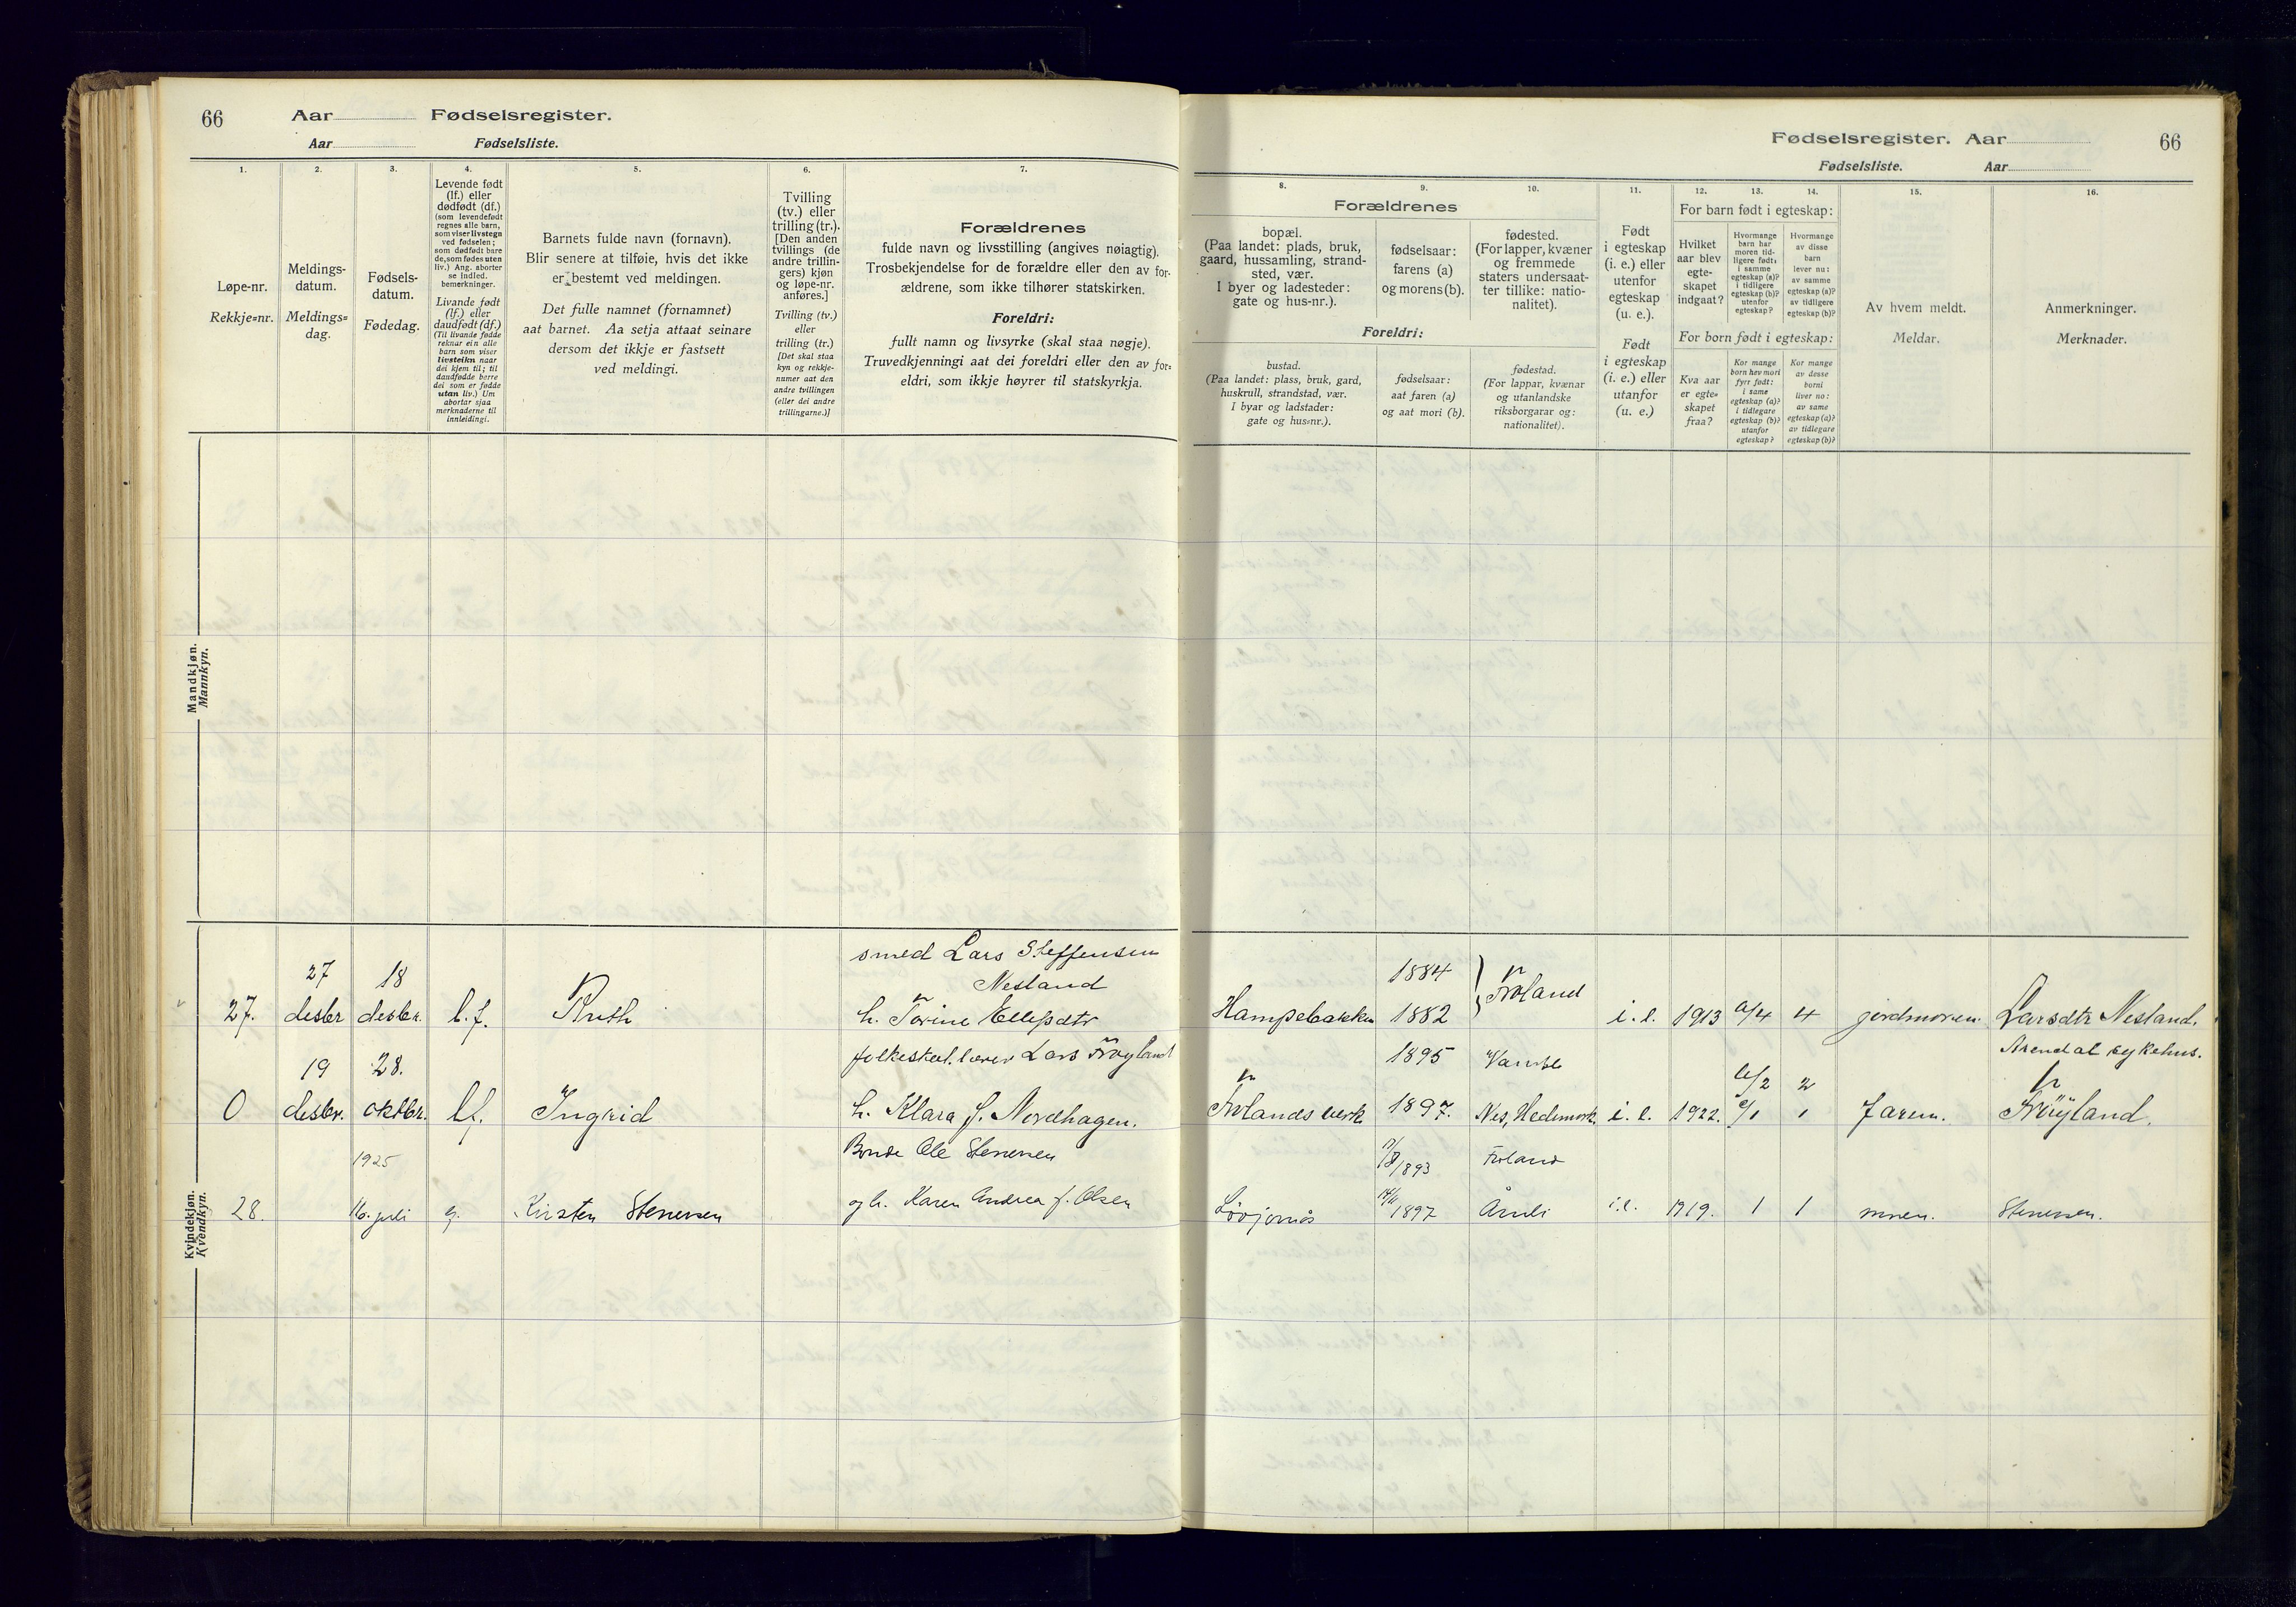 66 Aar Fødselsregister.
Aar Fødselsliste.
1. 2. 3. 4. 5. 6. 7.
Løpe-nr.
Rekkje-nr.
Meldings-
datum.
Meldings-
dag.
Fødsels-
datum.
Fødedag.
Levende født
(lf.) eller
dødfødt (df.)
(som levendefødt
regnes alle barn,
som viser livstegn
ved fødselen;
som dødfødt bare
de, som fødes uten
liv.) Ang. aborter
se indled.
bemerkninger.
Livande født
(lf.) eller
daudfødt (df.)
(Til livande fødde
reknar ein alle
barn som viser
livsteikn naar
dei kjem til; til
daudfødde berre
dei som er fødde
utan liv.) Um
abortar sjaa
merknaderne til
innleidingi.
Barnets fulde navn (fornavn).
Blir senere at tilføie, hvis det ikke
er bestemt ved meldingen.
Det fulle namnet (fornamnet)
aat barnet. Aa setja attaat seinare
dersom det ikkje er fastsett
ved meldingi.
Tvilling
(tv.) eller
trilling (tr.).
[Den anden
tvillings (de
andre trillin-
gers) kjøn
og løpe-nr.
anføres.]
Tvilling (tv.)
eller
trilling (tr.)
[Det skal staa
kyn og rekkje-
numer aat den
andre tvillingen
(eller dei andre
trillingarne.)]
Forældrenes
fulde navn og livsstilling (angives nøiagtig).
Trosbekjendelse for de forældre eller den av for-
ældrene, som ikke tilhører statskirken.
Foreldri:
fullt namn og livsyrke (skal staa nøgje).
Truvedkjenningi aat dei foreldri eller den av for-
eldri, som ikkje høyrer til statskyrkja.
Mandkjøn.
Mannkyn.
Kvindekjøn.
Kvendkyn.
smed Lars Steffensen
Nesland
27. 27 desbr 18 desbr. l.f. Ruth h. Torine Ellefsdtr
folkeskol.lærer Lars Frøyland
0 19 desbr. 28. oktbr. lf. Ingrid h. Klara f. Nordhagen.
1925 Bonde Ole Stenersen
28. 16. juli Kirsten Stenersen og h. Karen Andrea f. Olsen
Fødselsregister. Aar 66
Fødselsliste. Aar
8. 9. 10. 11. 12. 13. 14. 15. 16.
Forældrenes
bopæl.
(Paa landet: plads, bruk,
gaard, hussamling, strand-
sted, vær.
I byer og ladesteder:
gate og hus-nr.).
fødselsaar:
farens (a)
og morens (b).
fødested.
(For lapper, kvæner
og fremmede
staters undersaat-
ter tillike: natio-
nalitet).
Foreldri:
bustad.
(Paa landet: plass, bruk, gard,
huskrull, strandstad, vær.
I byar og ladstader:
gate og hus-nr.).
fødselsaar:
aat faren (a)
og aat mori (b).
fødestad.
(For lappar, kvænar
og utanlandske
riksborgarar og:
nationalitet).
Født
i egteskap
(i. e.) eller
utenfor
egteskap
(u. e.).
Født
i egteskap
(i. e.) eller
utanfor
(u. e.)
For barn født i egteskap:
Hvilket
aar blev
egte-
skapet
indgaat?
Hvormange
barn har
moren tid-
ligere født:
i samme
egteskap (a)?
i tidligere
egteskap (b)?
utenfor
egteskap?
Hvormange
av disse
barn
lever nu:
av samme
egteskap (a)?
av tidligere
egteskap (b)?
For born født i egteskap:
Kva aar
er egte-
skapet
fraa?
Kor mange
born hev mori
fyrr født:
i same
egteskap (a)?
i tidlegare
egteskap (b)?
utanfor
egteskap?
Kor mange
av desse
borni
liver no:
av same
egteskap (a)?
av tidlegare
egteskap (b)?
Av hvem meldt.
Meldar.
Anmerkninger.
Merknader.
1884
Hampebakken 1882 Froland i. e. 1913 a/4 4 jordmoren. Larsdtr Nesland.
1895 Vanse Arendal sykehus.
Frolands verk 1897. Nes, Hedmork. i. e. 1922. a/2 c/1 2 1 Faren. Frøyland.
1893 Froland
Løvjomås 1897 Åmli i.e. 1919. 1 1 moren. Stenersen.